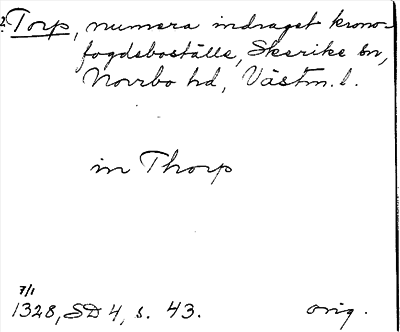 2. Torp, numera indraget krono-
fogdeboställe, Skerike sn,
Norrbo hd, Västm. l.
in Thorp
7/1
1328, SD 4, s. 43. orig.